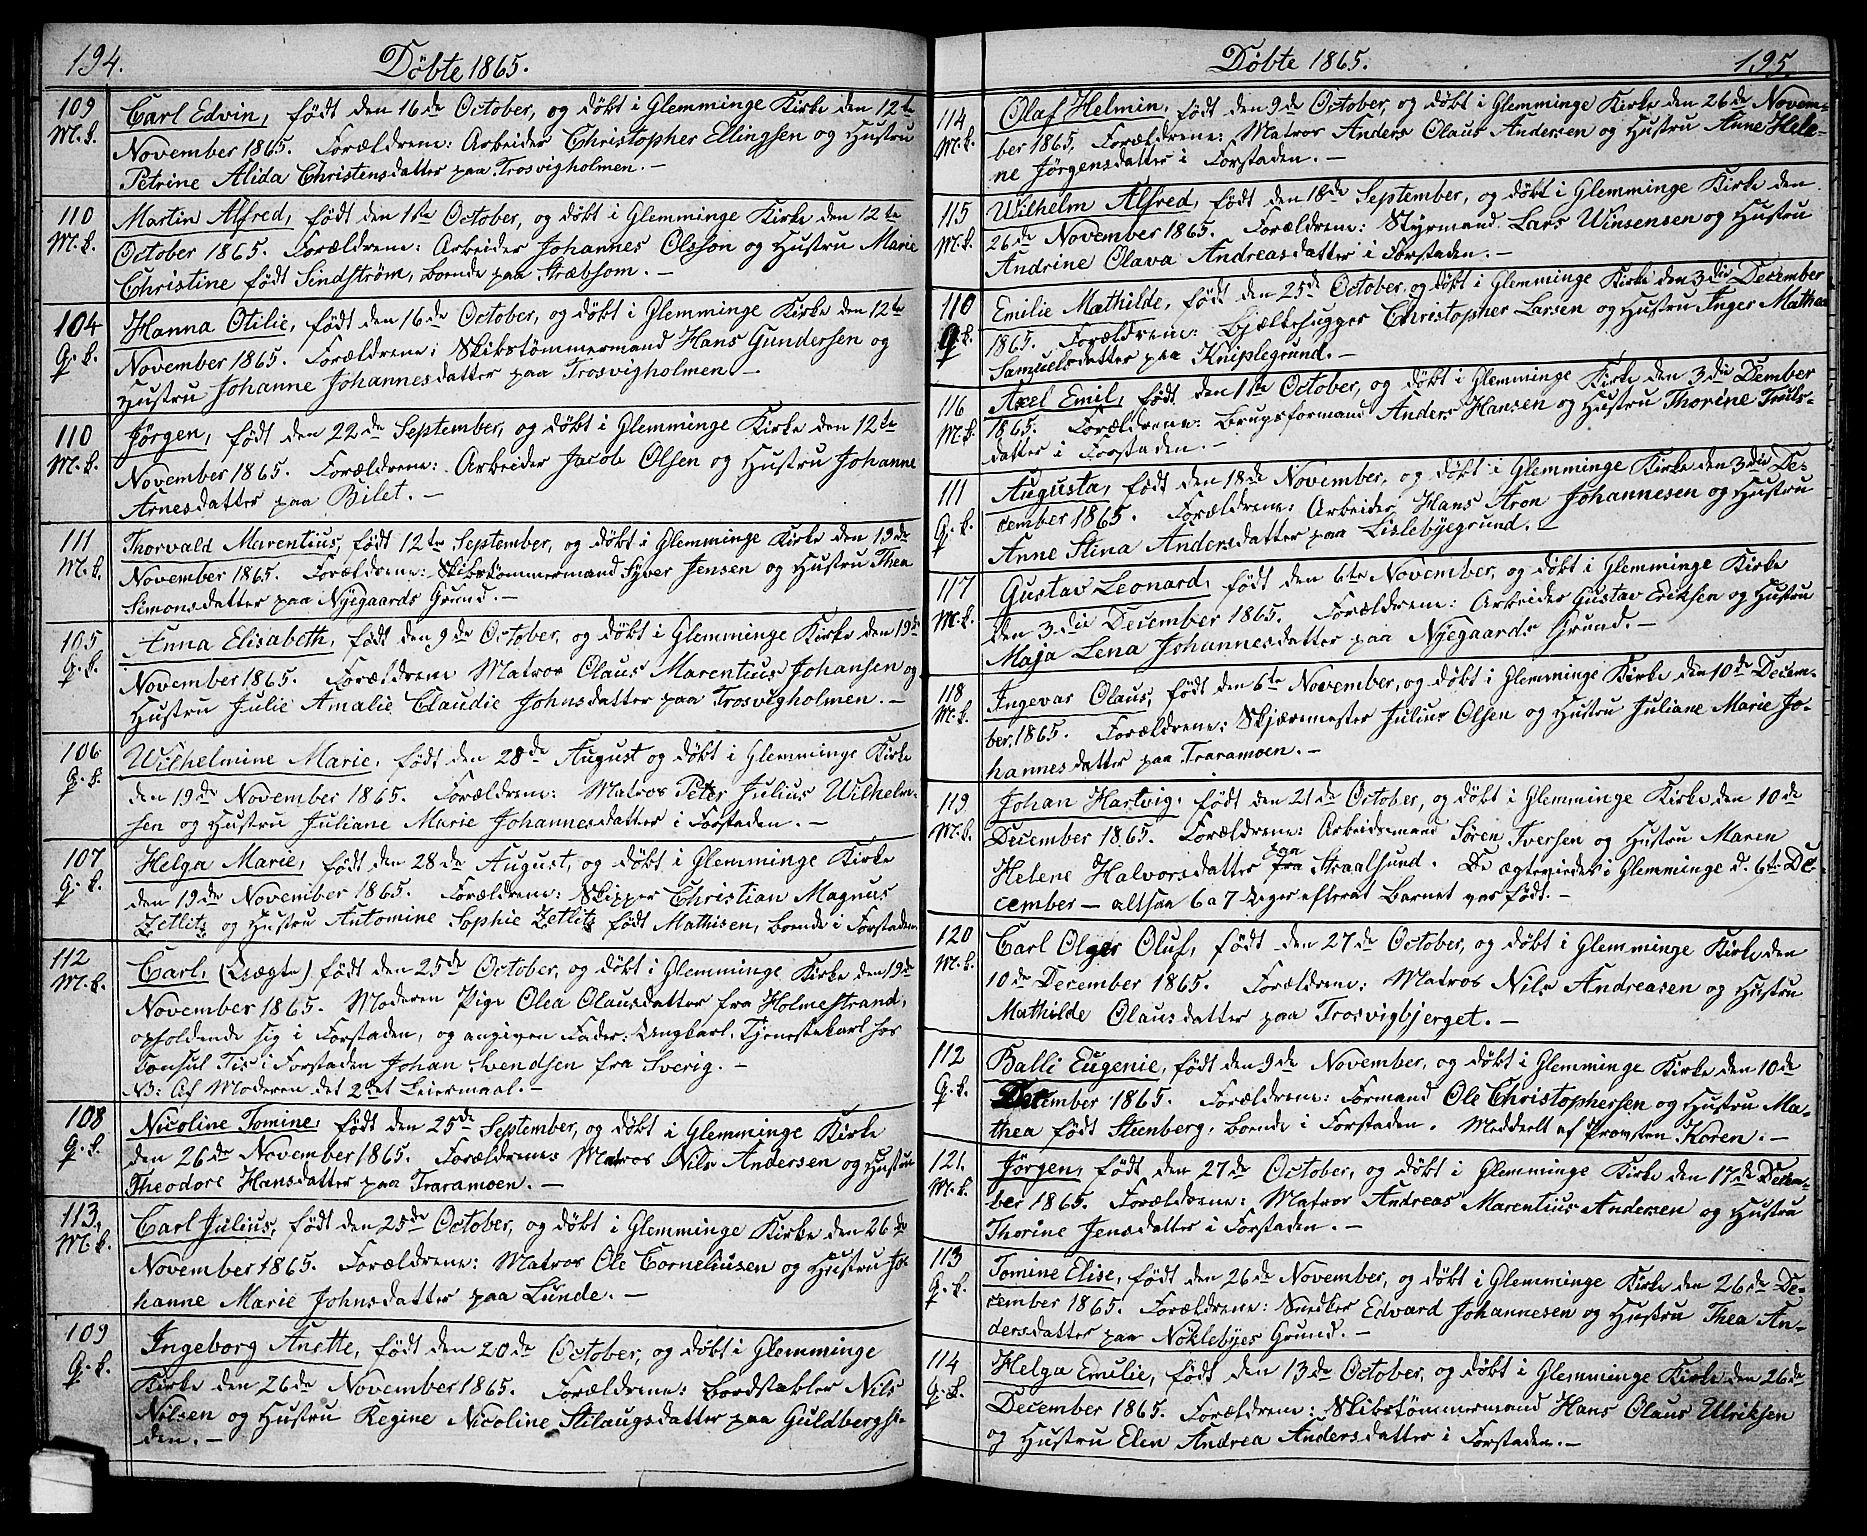 194.
Döbte 1865.
109 Carl Edvin, född den 16de October, og döbt i Glemminge Kirke den 12te
M.k. November 1865. Forældrene: Arbeider Christopher Ellingsen og Hustru
Petrine Alida Christensdatter paa Trosvigholmen. —
110 Martin Alfred, født den 1ste October, og døbt i Glemminge Kirke den 12te
M.k. October 1865. Forældrene: Arbeider Johannes Olsson og Hustru Marie
Christine født Sindström, boende paa Stræbsom. —
104 Hanna Otilie, født den 16de October, og døbt i Glemminge Kirke den 12te
Q.k. November 1865. Forældrene: Skibstømmermand Hans Gundersen og
Hustru Johanne Johannesdatter paa Trosvigholmen —
110 Jørgen, født den 22de September, og døbt i Glemminge Kirke den 12te
M.k. November 1865. Forældrene: Arbeider Jacob Olsen og Hustru Johanne
Arnesdatter paa Bilet. —
111 Thorvald Marentius, født 12te September, og døbt i Glemminge Kirke den 19de
M.k. November 1865. Forældrene: Skibstømmermand Syver Jensen og Hustru Thea
Simonsdatter paa Nygaards Grund. —
105 Anna Elisabeth, født den 9de October, og døbt i Glemminge Kirke den 19de
Q.k. November 1865. Forældrene Matros Claus Marentius Johansen og
Hustru Julie Amalie Claudie Johnsdatter paa Trosvigholmen. —
106 Wilhelmine Marie, født den 28de August og døbt i Glemminge Kirke
Q.k. den 19de November 1865. Forældrene: Matros Peter Julius Wilhelm-
sen og Hustru Juliane Marie Johannesdatter i Forstaden. —
107 Helga Marie, født den 28de August, og døbt i Glemminge Kirke
Q.k. den 19de November 1865. Forældrene: Skipper Christian Magnus
Zetlitz og Hustru Antomine Sophie Zetlitz født Mathisen, boende i Forstaden
112 Carl, (Uægte) født den 25de October, og døbt i Glemminge Kirke den 19de
M.k. November 1865. Moderen Pige Olea Olausdatter fra Holmestrand,
opholdende sig i Forstaden, og angiven Fader: Ungkarl, Tjenestekarl hos
Consul Tis i Forstaden Johan Svendsen fra Sverig. —
NB: Af Moderen det 2det Leiermaal. —
108 Nicoline Tomine, født den 25de September, og døbt i Glemminge Kirke
Q.k. den 26de November 1865. Forældrene Matros Nils Andersen og Hustru
Theodore Hansdatter paa Traramoen. —
113, Carl Julius, født den 25de October, og døbt i Glemminge Kirke den 26de
M.k. November 1865. Forældrene: Matros Ole Corneliusen og Hustru Jo-
hanne Marie Johnsdatter paa Lunde. —
109 Ingeborg Anette, født den 20de October, og døbt i Glemminge
Q.k. Kirke den 26de November 1865. Forældrene: Bordstabler Nils
Nilsen og Hustru Regine Nicoline Stilaugsdatter paa Guldbergsi-
den. —
Døbte 1865.
195.
114 Olaf Helmin, født den 9de October, og døbt i Glemminge Kirke den 26de Novem-
M.k. ber 1865. Forældrene: Matros Anders Olaus Andersen og Hustru Anne Hele-
ne Jørgensdatter i Forstaden. —
115 Wilhelm Alfred, født den 18de September, og døbt i Glemminge Kirke den
M.k. 26de November 1865. Forældrene: Styrmand Lars Winsensen og Hustru
Andrine Olava Andreasdatter i Forstaden. —
110 Emilie Mathilde, født den 25de October, og døbt i Glemminge Kirke den 3die December
Q.k. 1865. Forældrene: Bjælkehugger Christopher Larsen og Hustru Inger Mathea
Samuelsdatter paa Kniplegrund. —
116 Axel Emil, født den 1ste October, og døbt i Glemminge Kirke den 3die Dember
M.k. 1865. Forældrene: Brugsformand Anders Hansen og Hustru Thorine Truls-
datter i Forstaden. —
111 Augusta, født den 18de November, og døbt i Glemminge Kirke den 3die De-
Q.k. cember 1865. Forældrene: Arbeider Hans Aron Johannesen og Hustru
Anne Stina Andersdatter paa Lislebyegrund. —
117 Gustav Leonard, født den 6te November, og døbt i Glemminge Kirke
M.k. den 3die December 1865. Forældrene: Arbeider Gustav Eriksen og Hustru
Maja Lena Johannesdatter paa Nyegaards Grund. —
118 Ingevar Olaus, født den 6te November, og døbt i Glemminge Kirke den 10de Decem-
M.k. ber, 1865. Forældrene: Skjærmester Julius Olsen og Hustru Juliane Marie Jo-
hannesdatter paa Traramoen. —
119 Johan Hartvig, født den 21de October, og døbt i Glemminge Kirke den 10de
M.k. December 1865. Forældrene: Arbeidsmand Søren Iversen og Hustru Maren
Helene Halvorsdatter fra paa Straalsund. De ægteviedes i Glemminge d. 6te De-
cember — altsaa 6 a 7 Uger efterat Barnet var født. —
120 Carl Olger Oluf, født den 27de October, og døbt i Glemminge Kirke den
M.k. 10de December 1865. Forældrene: Matros Nils Andreasen og Hustru
Mathilde Olausdatter paa Trosvigbjerget. —
112 Balli Eugenie, født den 9de November, og døbt i Glemminge Kirke den 10de
Q.k. December 1865. Forældrene: Formand Ole Christophersen og Hustru Ma-
thea født Steenberg, boende i Forstaden. Meddeelt af Provsten Koren. —
121. Jørgen, født den 27de October, og døbt i Glemminge Kirke den 17de Decem-
M.k. ber 1865. Forældrene: Matros Andreas Marentius Andersen og Hustru
Thorine Jensdatter i Forstaden. —
113 Tomine Elise, født den 26de November, og døbt i Glemminge Kirke den 26de De-
Q.k. cember 1865. Forældrene: Snedker Edvard Johannesen og Hustru Thea An-
dersdatter paa Nøklebyes Grund. —
114 Helga Emilie, født den 13de October, og døbt i Glemminge Kirke den 26de
Q.k. December 1865. Forældrene: Skibstømmermand Hans Olaus Ulriksen
og Hustru Elen Andrea Andersdatter i Forstaden. —